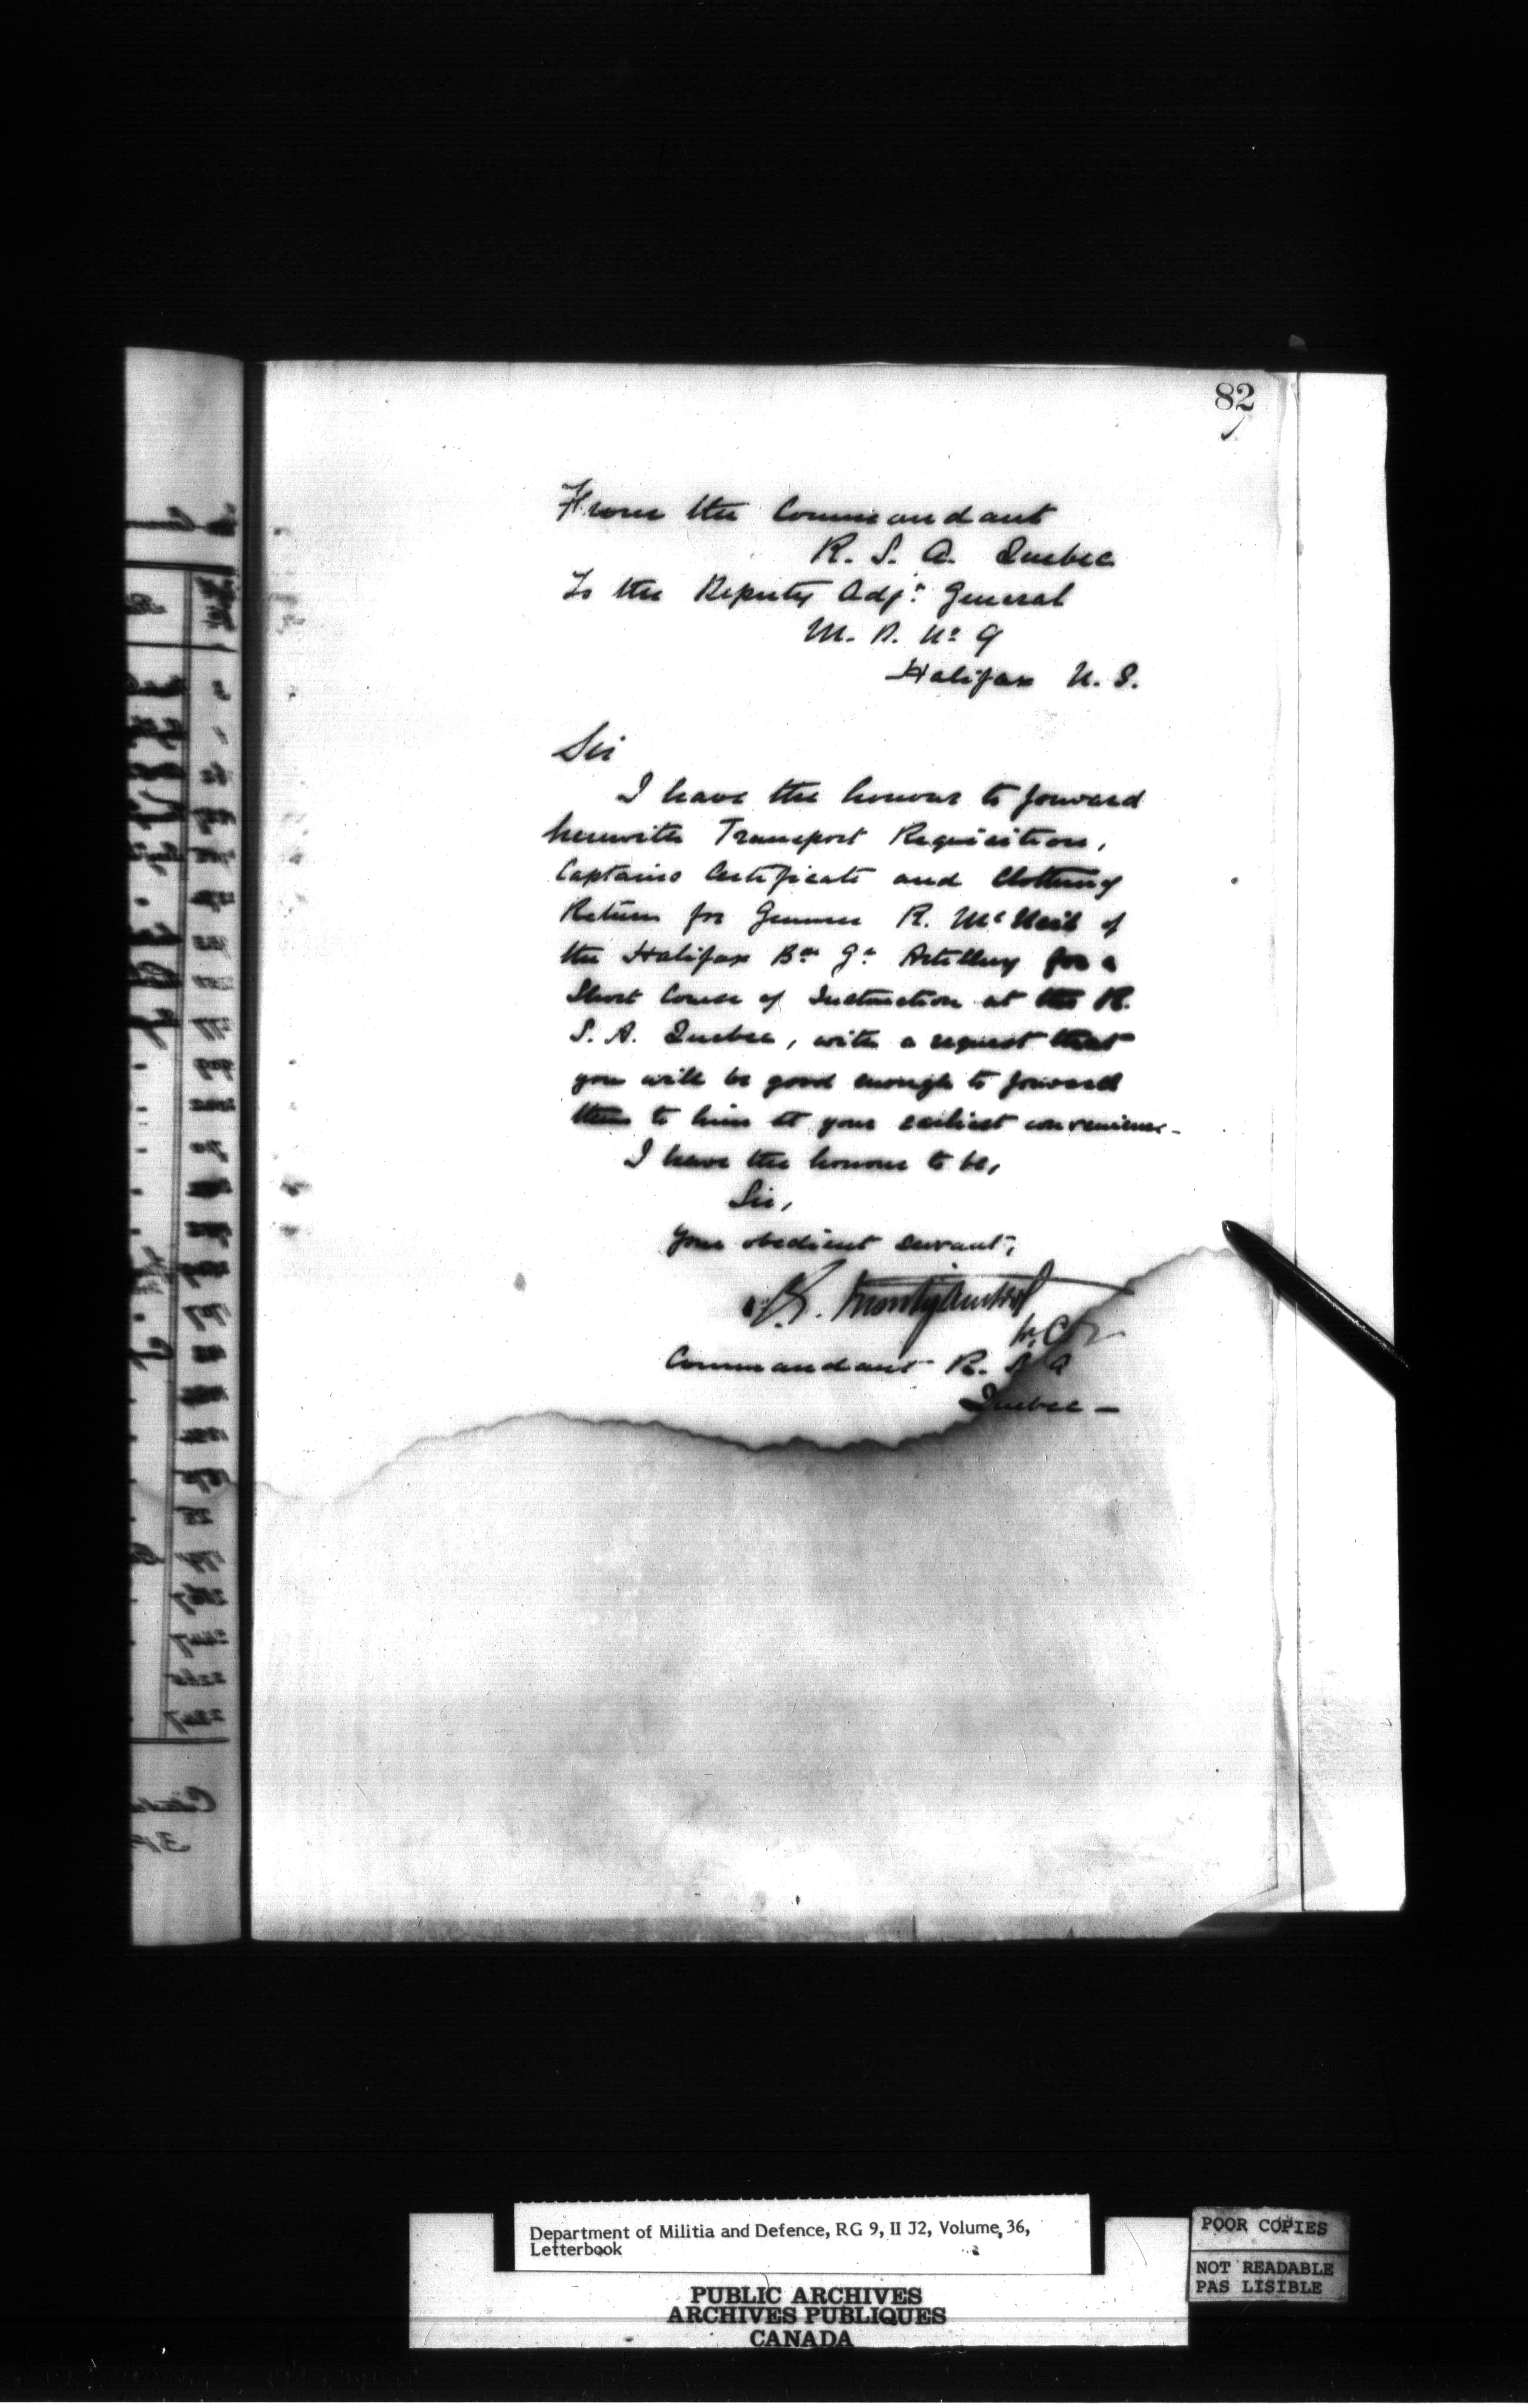 82
From the Commandant
R. S. A. Quebec
To the Deputy Adjt General
M. D. No 9
Halifax N. S.
Sir
I have the honour to forward
herewith Transport Requisition,
Captains Certificate and Clothing
Return for Gunner R. McNeil of
the Halifax Bde Gn Artillery for a
Short Course of Instruction at the R.
S. A. Quebec, with a request that
you will be good enough to forward
them to him at your earliest convenience -
I have the honour to be,
Sir,
Your obedient servant,
Commandant R. S. A
Quebec -
Department of Militia and Defence, RG 9, II J2, Volume 36,
Letterbook
PUBLIC ARCHIVES
ARCHIVES PUBLIQUES
CANADA
POOR COPIES
NOT READABLE
PAS LISIBLE